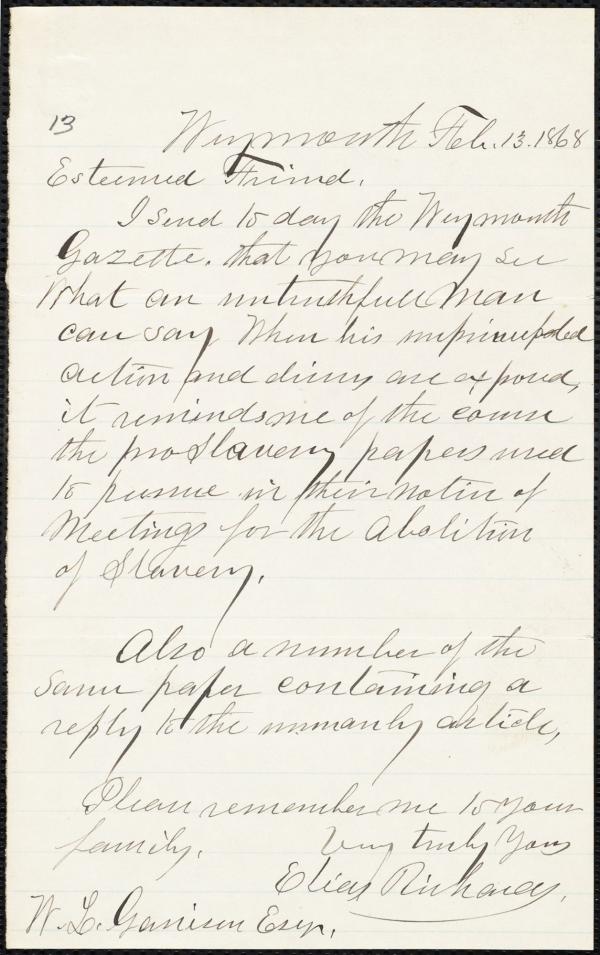 13
Weymouth Feb. 13. 1868
Esteemed Friend.
I send to day the Weymouth
Gazette. that you may see
What an untruthfull Man
can say When his unprincipled
action and doings are exposed,
it reminds me of the course
the proSlavery papers used
to pursue in their notice of
Meetings for the Abolition
of Slavery.
Also a number of the
same paper containing a
reply to the unmanly article,
Please remember me to your
family. Very truly Yours
Elias Richards.
W. L. Garrison Esqr.